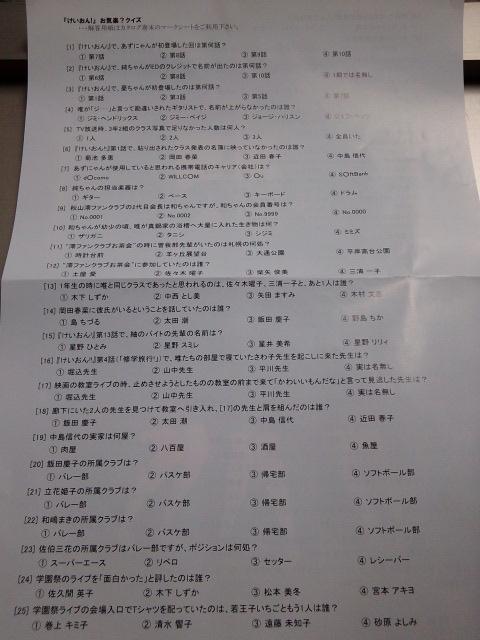 『けいおん!』 お気楽?クイズ
・・・解答用紙はカタログ巻末のマークシートをご利用下さい。
[1] 『けいおん』で、あずにゃんが初登場した回は第何話?
① 第7話 ② 第8話 ③ 第9話 ④ 第10話
[2] 『けいおん』で、純ちゃんがEDのクレジットで名前が出たのは第何話?
① 第6話 ② 第8話 ③ 第10話 ④ 1期では名無し
[3] 『けいおん』で、憂ちゃんが初登場したのは第何話?
① 第1話 ② 第3話 ③ 第5話 ④ 第7話
[4] 唯が「ジ…」と言って勘違いされたギタリストで、名前が上がらなかったのは誰?
① ジミ・ヘンドリックス ② ジミー・ペイジ ③ ジョージ・ハリスン ④
[5] TV放送時、3年2組のクラス写真で足りなかった人数は何人?
① 1人 ② 2人 ③ 3人 ④ 全員いた
[6] 『けいおん』第1話で、貼り出されたクラス発表の名簿に映っていなかったのは誰?
① 菊池 多恵 ② 岡田 春菜 ③ 近田 春子 ④ 中島 信代
[7] あずにゃんが使用していると思われる携帯電話のキャリア(会社)は?
① d○como ② WILLCOM ③ ○u ④ S○ftBank
[8] 純ちゃんの担当楽器は?
① ギター ② ベース ③ キーボード ④ ドラム
[9] 秋山澪ファンクラブの2代目会長は和ちゃんですが、和ちゃんの会員番号は?
① No.0001 ② No.0002 ③ No.9999 ④ No.0000
[10] 和ちゃんが幼少の頃、唯が真鍋家の浴槽へ大量に入れた生き物は何?
① ザリガニ ② タニシ ③ シジミ ④ ミミズ
[11] “澪ファンクラブお茶会”の時に曽我部先輩がいたのは札幌の何処?
① 時計台前 ② 羊ヶ丘展望台 ③ 大通公園 ④ 平岸高台公園
[12] “澪ファンクラブお茶会”に参加していたのは誰?
① 土屋 愛 ② 佐々木 曜子 ③ 柴矢 俊美 ④ 三浦 一子
[13] 1年生の時に唯と同じクラスであったと思われるのは、佐々木曜子、三浦一子と、あと1人は誰?
① 木下 しずか ② 中西 とし美 ③ 矢田 ますみ ④ 木村 文恵
[14] 岡田春菜に彼氏がいるということを話していたのは誰?
① 島 ちづる ② 太田 潮 ③ 飯田 慶子 ④ 野島 ちか
[15] 『けいおん!』第13話で、紬のバイトの先輩の名前は?
① 星野 ひとみ ② 星野 スミレ ③ 星井 美希 ④ 星野 リリィ
[16] 『けいおん!!』第4話(「修学旅行!」)で、唯たちの部屋で寝ていたさわ子先生を起こしに来た先生は?
① 堀込先生 ② 山中先生 ③ 平川先生 ④ 実は名無し
[17] 映画の教室ライブの時、止めさせようとしたものの教室の前まで来て「かわいいもんだな」と言って見逃した先生は?
① 堀込先生 ② 山中先生 ③ 平川先生 ④ 実は名無し
[18] 廊下にいた2人の先生を見つけて教室へ引き入れ、[17]の先生と肩を組んだのは誰?
① 飯田 慶子 ② 太田 潮 ③ 中島 信代 ④ 近田 春子
[19] 中島信代の実家は何屋?
① 肉屋 ② 八百屋 ③ 酒屋 ④ 魚屋
[20] 飯田慶子の所属クラブは?
① バレー部 ② バスケ部 ③ 帰宅部 ④ ソフトボール部
[21] 立花姫子の所属クラブは?
① バレー部 ② バスケ部 ③ 帰宅部 ④ ソフトボール部
[22] 和嶋まきの所属クラブは?
① バレー部 ② バスケ部 ③ 帰宅部 ④ ソフトボール部
[23] 佐伯三花の所属クラブはバレー部ですが、ポジションは何処?
① スーパーエース ② リベロ ③ セッター ④ レシーバー
[24] 学園祭のライブを「面白かった」と評したのは誰?
① 佐久間 英子 ② 木下 しずか ③ 松本 美冬 ④ 宮本 アキヨ
[25] 学園祭ライブの会場入口でTシャツを配っていたのは、若王子いちごともう1人は誰?
① 巻上 キミ子 ② 清水 響子 ③ 遠藤 未知子 ④ 砂原 よしみ